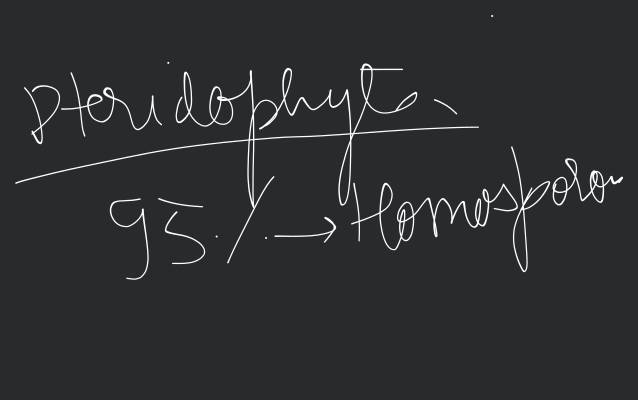 Pteridophyte
95% → Homosporou